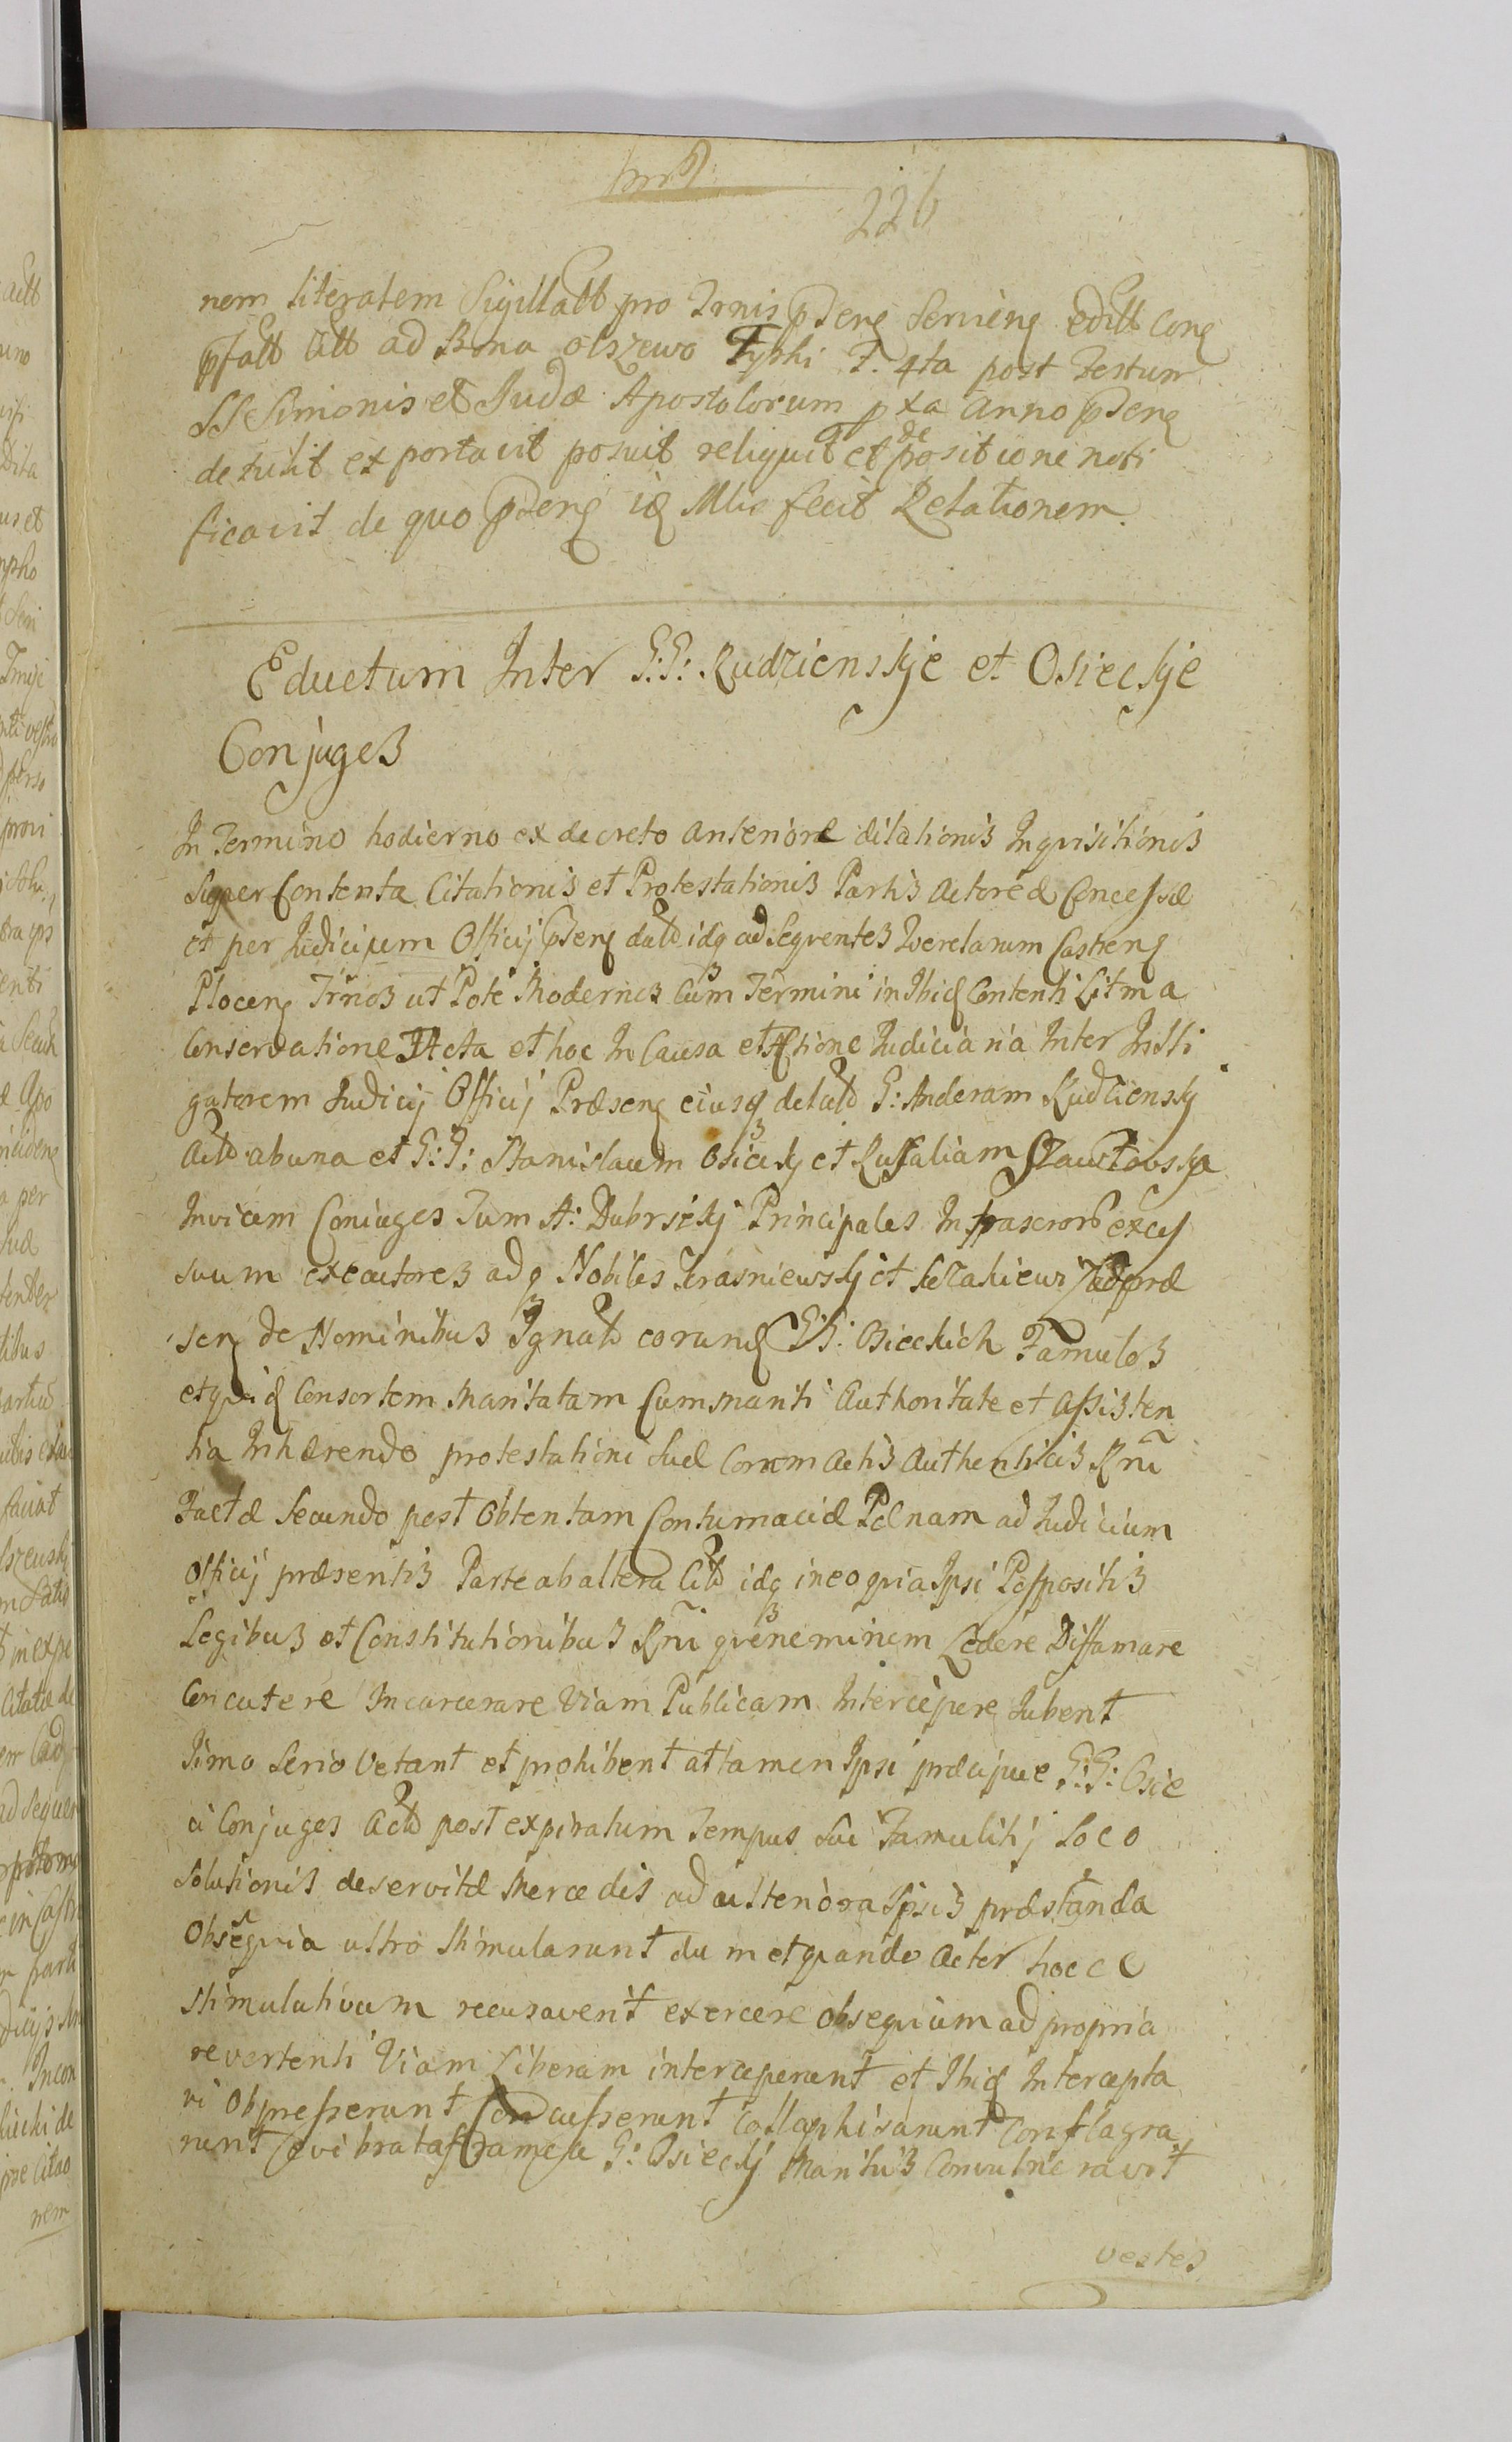 226
nem literalem Sigillatt pro Trnis pdeng Servieng editt Cong
pfatt Att ad Bona Olszewo Typhi F. 4ta post Festum
SS Simonis et Judæ Apostolorum pxa Anno pdeng
detulit exportavit posuit reliquit et de positione noti
ficavit de quo pdeng idq Mlis fecit Relationem.
Eductum Inter G:G: Rudzienskje et Osieckje
Conjuges
In Termino hodierno ex decreto anteriore dilationis Inquisitionis
Super Contenta Citationis et Protestationis Partis Actoreæ Concessæ
et per Judicium Officij pdeng datt idq ad Sequentes Querelarum Castreng
Ploceng Trnos ut Pote Modernos Cum Termini in Ibidq Contenti Litma
Conservatione Acta et hoc In Causa et Actione Judiciaria Inter Insti
gatorem Judicij Officij Præseng eiusq delatt G: Anderam Rudzienskj
Actt ab una et G:G: Stanislaum Osieckj et Rusaliam
Invicem Coniuges Tum A: Dubrsckj Principales Infrascrorb exces
suum executores adq Nobiles Krasniewskj et præ
seng de Nominibus Ignatt eorundq G:G: Osieckich Famulos
et quidq Consortem Maritatam Cum Mariti Authoritate et Assisten
tia Inhærendo protestationi Suæ Coram Actis Authenticis Rni
Factæ Secundo post Obtentam Contumaciæ Pænam ad Judicium
Officij præsentis Parte ab altera Citt idq ineo quia Ipsi Posspositis
Legibus et Constitutionibus Rni quæ neminem Lædere Diffamare
Concutere Incarcerare Viam Publicam Intercipere Jubent
Jimo Serio Vetant et prohibent attamen Ipsi præcipue G:G: Osie
ci Conjuges Actt post expiratum Tempus Sui Famulitij Loco
Solutionis deservitæ Mercedis ad ulteriora Ipsis præstanda
Obsequia ultro Stimularunt dum et quando Actor hocce
Stimulativum recusaverit exercere obsequium ad propria
revertenti Viam Liberam interceperunt et Ibidq Intercepta
vi Obpresserunt Concusserunt Collaphisarunt Conflagra
runt Evibrata Framea G: Osieckj Maritus Convulneravit
vestes